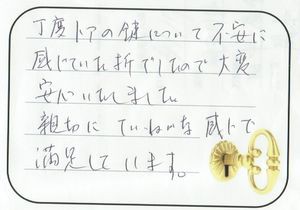 丁度ドアの鍵について不安に
感じていた折でしたので大変
安心いたしました
親切にていねいな感じで
満足しています。